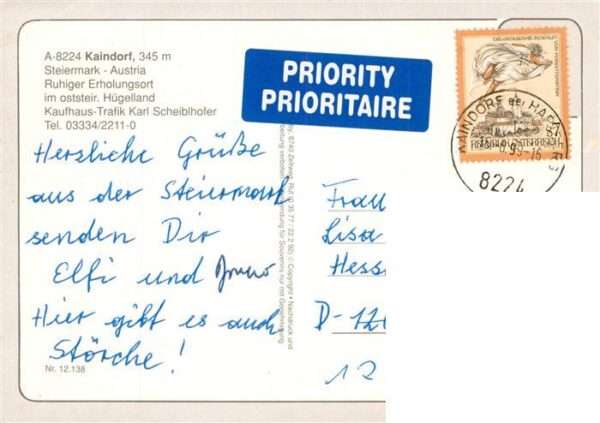 A-8224 Kaindorf, 345 m
Steiermark - Austria
Ruhiger Erholungsort
im oststeir. Hügelland
Kaufhaus-Trafik Karl Scheiblhofer
Tel. 03334/2211-0
PRIORITY
PRIORITAIRE
KAINDORF BEI
8224
REPUBLIK ÖSTERREICH
Herzliche Grüße
aus der Steiermark
senden Dir
Elfi und
Hier gibt es auch
Störche!
Nr. 12.138
8740 Zeltweg
Copyright • Nachdruck und
für Souvenirs nur mit Genehmigung
Frau
Lisa
Hess
D-12
12